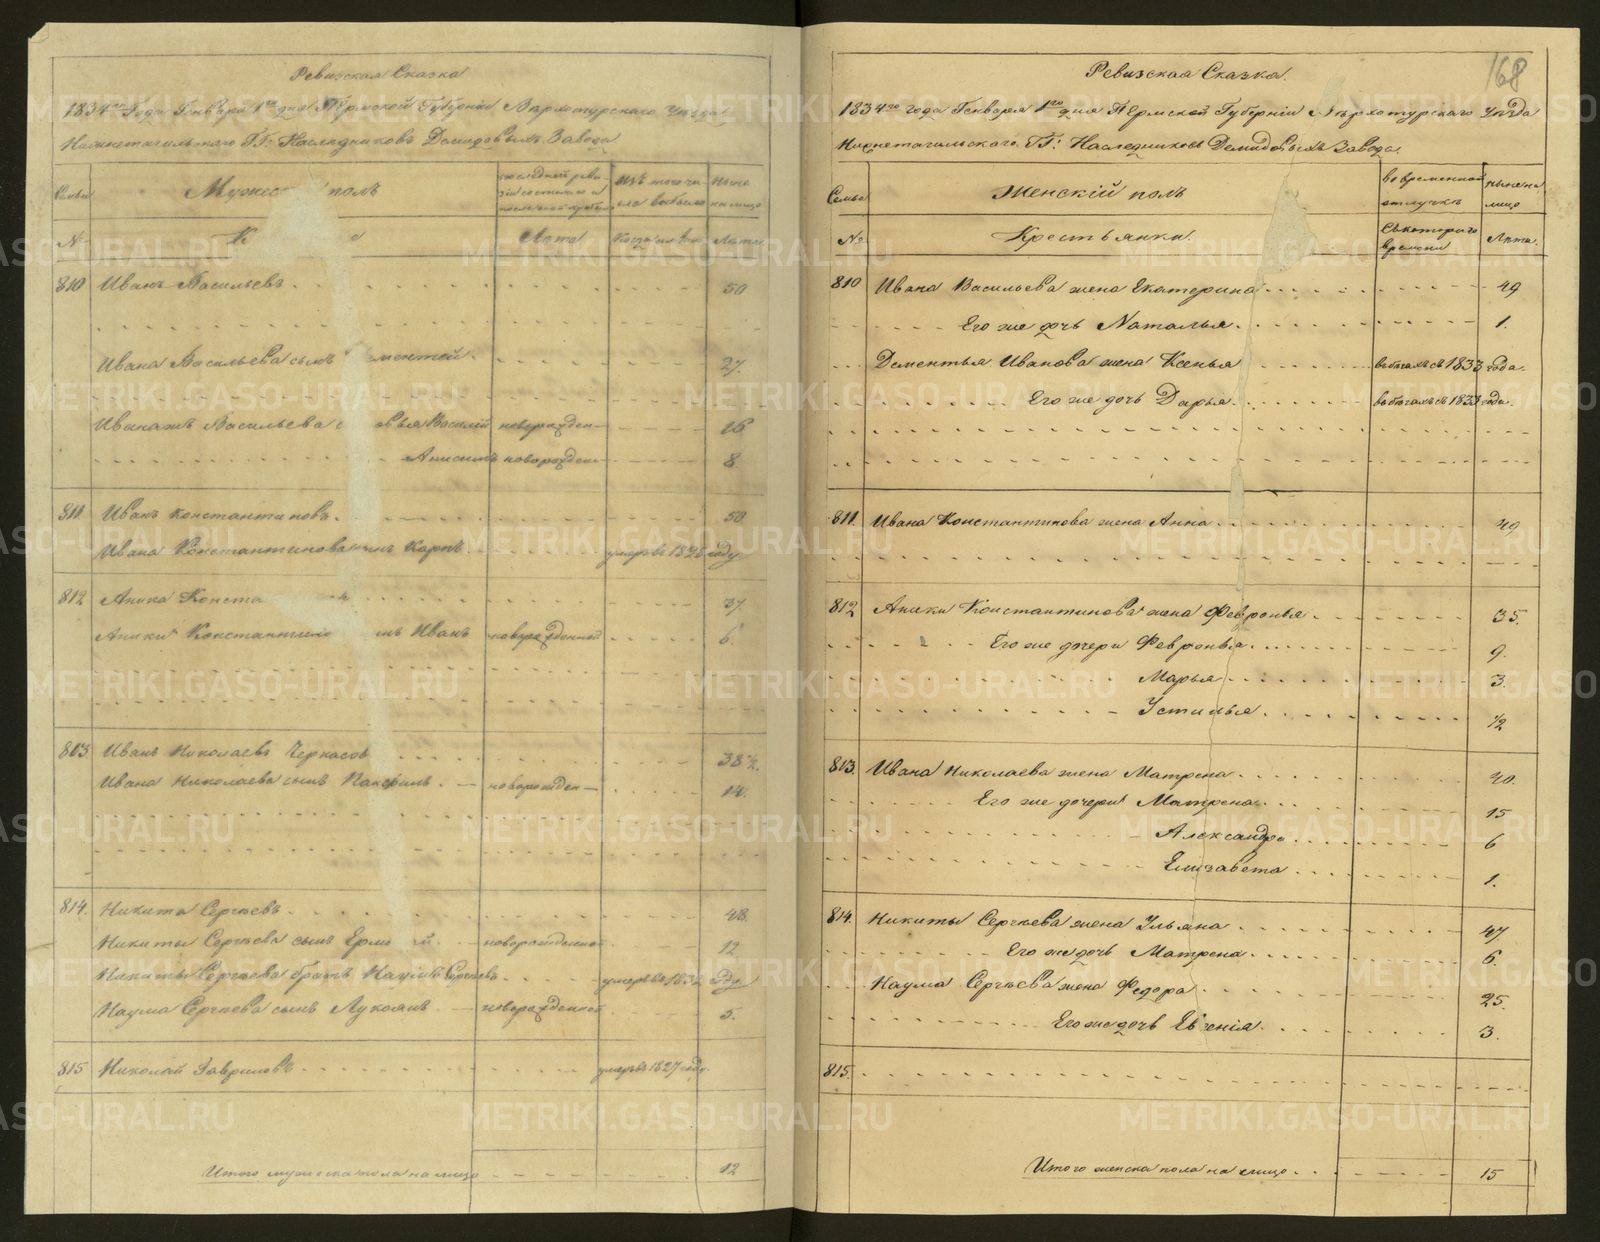 Ревизская Сказка
1834го Года Генваря 1го дня Пермской Губерніи Верхотурскаго Уѣзда
Нижнетагильскаго ГГ: Наслѣдниковъ Демидовыхъ Завода
Семьи Мужес полъ последней реви- зіи состояло и Изъ того чи- сла выбыло Нынѣ на лицо
№ К Лѣта Когда имян Лѣта
810 Иванъ Васильевъ 50
Ивана Васильева сынъ ментей 27.
Иванажъ Васильева вья Василій новорожден- 16
Анисимъ новорожден- 8
811. Иванъ Константиновъ. 50
Ивана Константинова сынъ Карпъ умеръ въ 1826 году
812 Аника Конста 37.
Аники Константино нъ Иванъ новорожденной 6.
813 Иванъ Николаевъ Черкасов 38½.
Ивана Николаева сынъ Панфилъ новорожден- 14.
814. Никита Сергѣевъ 48.
Никиты Сергѣева сынъ Ерм й новорожденной 12
Никиты Сергѣева братъ Наумъ Сергѣевъ умеръ въ 1832 году
Наума Сергѣева сынъ Лукоянъ новорожденной 5.
815 Николай Гавриловъ умеръ въ 1827 году.
Итого мужеска пола на лицо 12
168
Ревизская Сказка.
1834го года Генваря 1го дня Пермской Губерніи Верхотурскаго Уѣзда
Нижнетагильскаго ГГ: Наслѣдниковъ Демидовыхъ Завода.
Семьи Женскій полъ во временной отлучкѣ ныне на лицо
№ Крестьянки. Съ котораго времени Лѣта.
810 Ивана Васильева жена Екатерина 49
Его же дочь Наталья. 1.
Дементья Иванова жена Ксенья въ бѣгахъ съ 1833 года.
Его же дочь Дарья. въ бѣгахъ съ 1833 года.
811. Ивана Константинова жена Анна 49
812 Аники Константинова жена Февронья 35.
Его же дочери Февронья. 9.
Марья 3.
Устинья. ½
813. Ивана Николаева жена Матрена 40.
Его же дочери Матрена 15
Александра 6
Елизавета 1.
814. Никиты Сергѣева жена Ульяна 47
Его же дочь Матрена 6.
Наума Сергѣева жена Федора 25.
Его же дочь Евгенія. 3.
815.
Итого женска пола на лицо. 15
METRIKI.GASO-URAL.RU